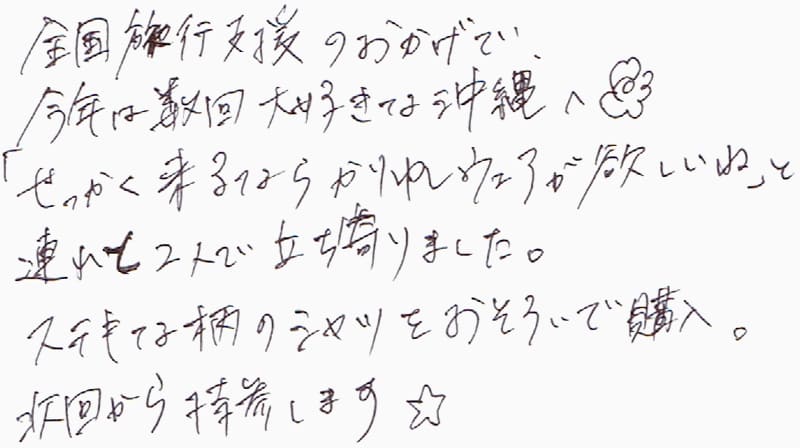 全国旅行支援のおかげで、
今年は数回大好きな沖縄へ
「せっかく来るならかりゆしウェアが欲しいね」と
連れと2人で立ち寄りました。
ステキな柄のシャツをおそろいで購入。
次回から持参します☆